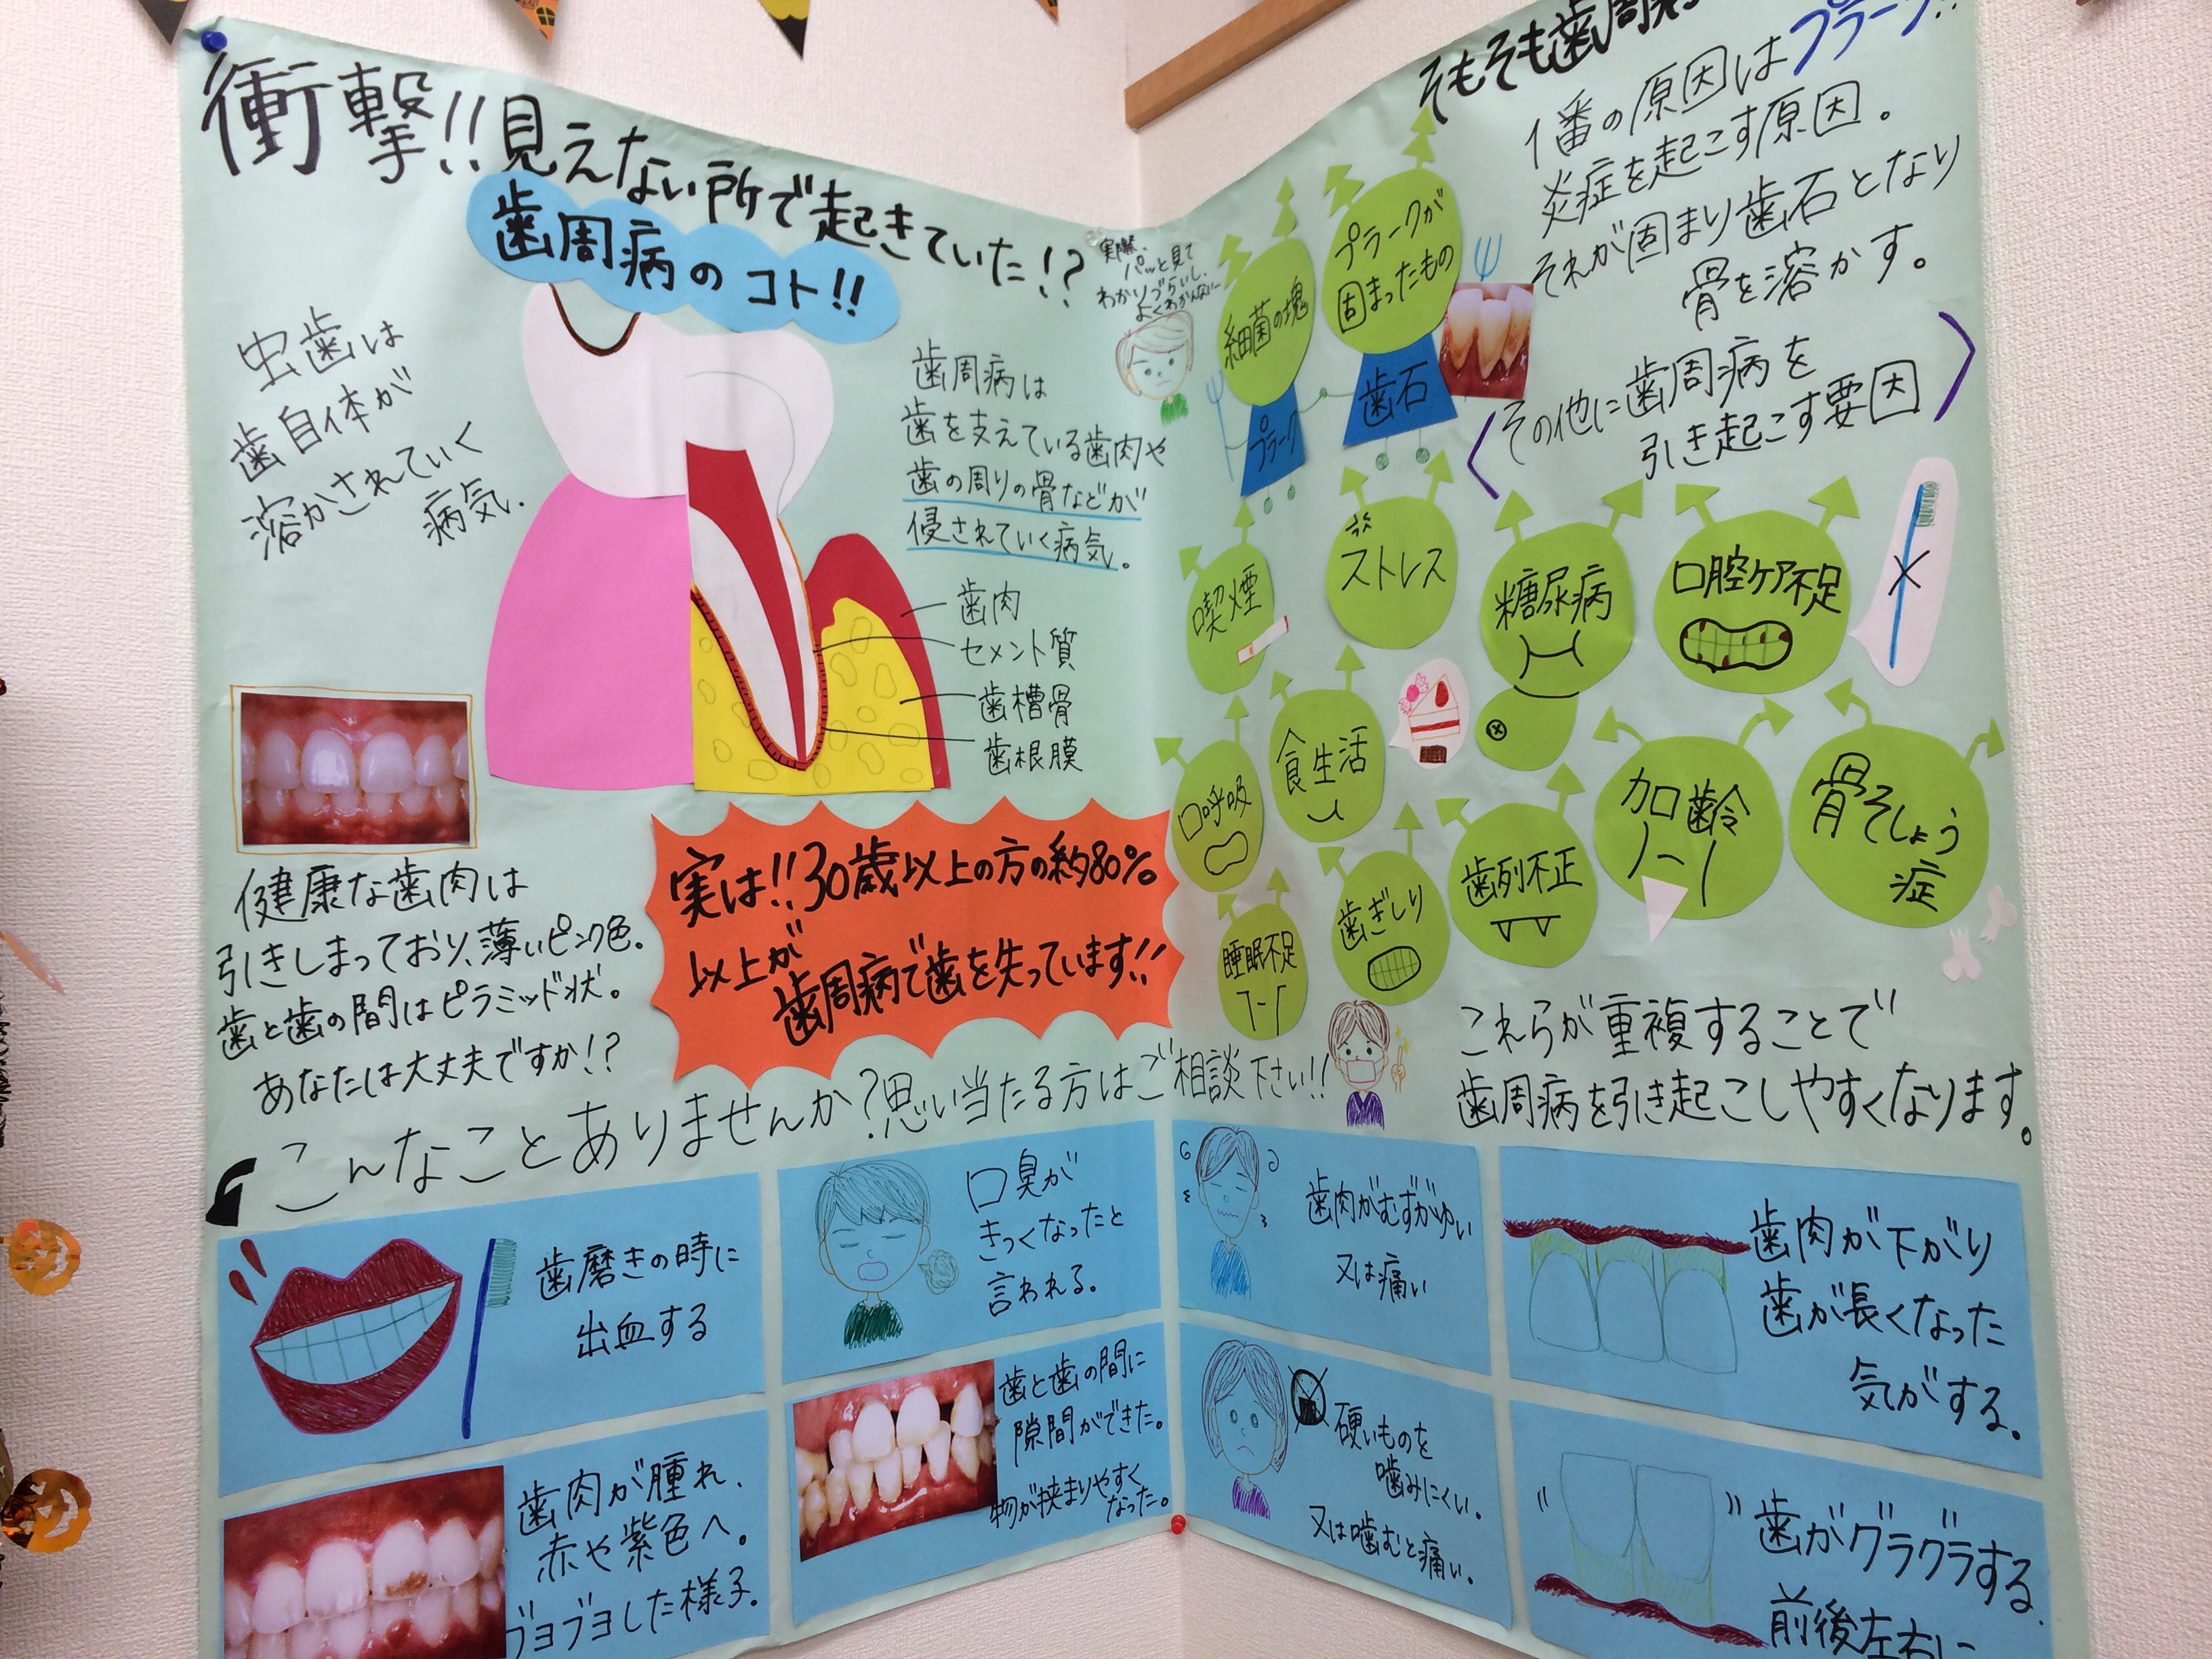 衝撃!!見えない所で起きていた!?
歯周病のコト!!
虫歯は
歯自体が
溶かされていく
病気.
歯周病は
歯を支えている歯肉や
歯の周りの骨などが
侵されていく病気。
歯肉
セメント質
歯槽骨
歯根膜
健康な歯肉は
引きしまっており、薄いピンク色.
歯と歯の間はピラミッド状。
あなたは大丈夫ですか!?
実は!!30歳以上の方の約80%
以上が
歯周病で歯を失っています!!
実際、
パッと見て
わかりづらいし、
よくわかんないー
そもそも歯周病
1番の原因はプラーク!!
炎症を起こす原因。
それが固まり歯石となり
骨を溶かす。
細菌の塊
プラーク
プラークが
固まったもの
歯石
その他に歯周病を
引き起こす要因
喫煙
ストレス
糖尿病
口腔ケア不足
口呼吸
食生活
加齢
骨そしょう
症
睡眠不足
歯ぎしり
歯列不正
これらが重複することで
歯周病を引き起こしやすくなります。
こんなことありませんか?思い当たる方はご相談下さい!!
歯磨きの時に
出血する
口臭が
きつくなったと
言われる.
歯肉がむずがゆい
又は痛い
歯肉が下がり
歯が長くなった
気がする.
歯肉が腫れ、
赤や紫色へ。
ブヨブヨした様子.
歯と歯の間に
隙間ができた。
物が挟まりやすく
なった。
硬いものを
噛みにくい.
又は噛むと痛い.
歯がグラグラする.
前後左右に